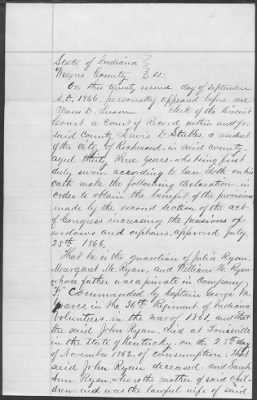 State of Indiana }
Wayne County } SS:
On this twenty second day of September
A.D. 1866, personally appeared before me
Clerk of the Circuit
Court, a Court of Record within and for
said County, Lewis D. Stubbs, a resident
of the City of Richmond, in said County,
aged thirty three years, who being first
duly sworn according to law, doth on his
oath make the following declaration in
order to obtain the benefit of the provision
made by the second section of the act
of Congress increasing the pensions of
widows and orphans, approved July
25th 1866.
That he is the guardian of Julia Ryan,
Margaret M. Ryan, and William H. Ryan
whose father was a private in Company
"F" Commanded by Captain George W.
in the 36th Regiment of Indiana
Volunteers, in the war of 1861, and that
the said John Ryan, died at Louisville
in the State of Kentucky, on the 28th day
of November 1862, of consumption; that
said John Ryan deceased and Sarah
Ann Ryan, who is the mother of said chil-
dren, and was the lawful wife of said